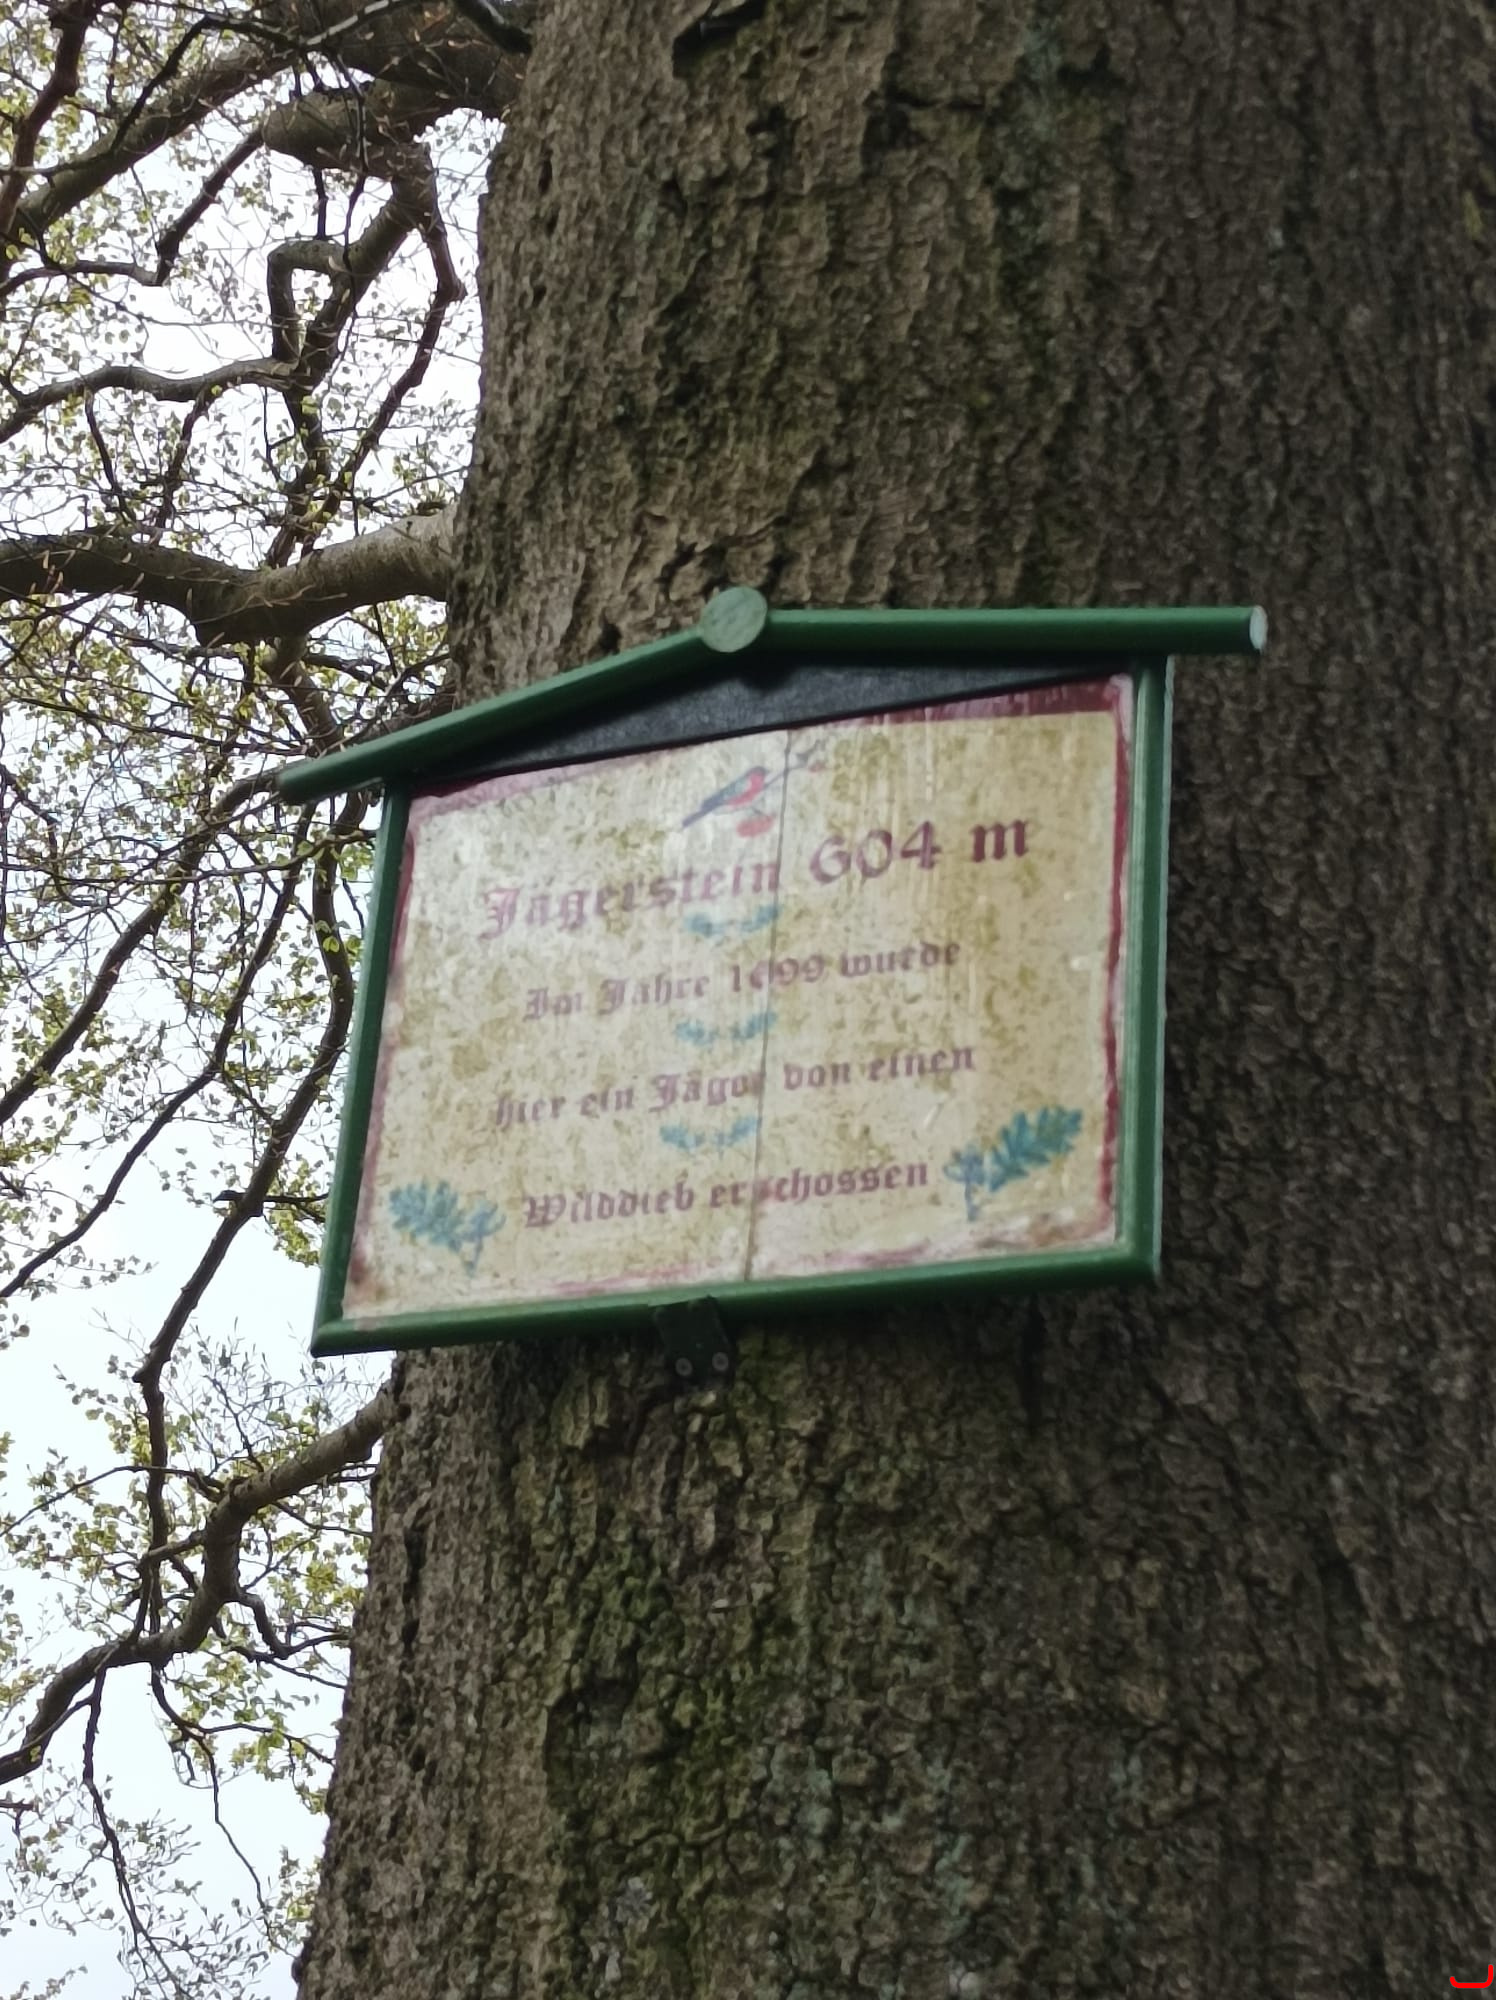 Jägerstein 604 m
Im Jahre 1699 wurde
hier ein Jäger von einen
Wilddieb erschossen